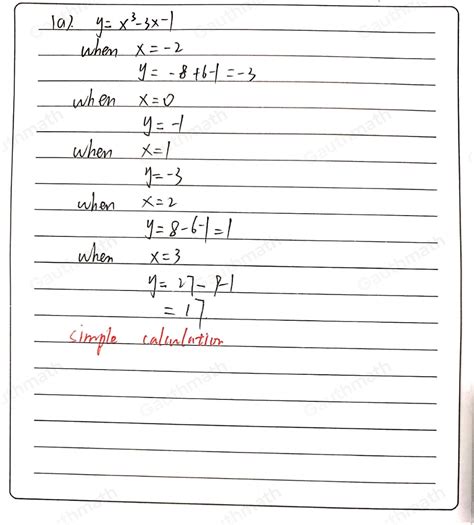 1a). y = x³-3x-1
when x = -2
y = -8+6-1 = -3
when x=0
y = -1
when x=1
y = -3
when x=2
y = 8-6-1 = 1
when x=3
y = 27-9-1
= 17
simple calculation
Gauthmath